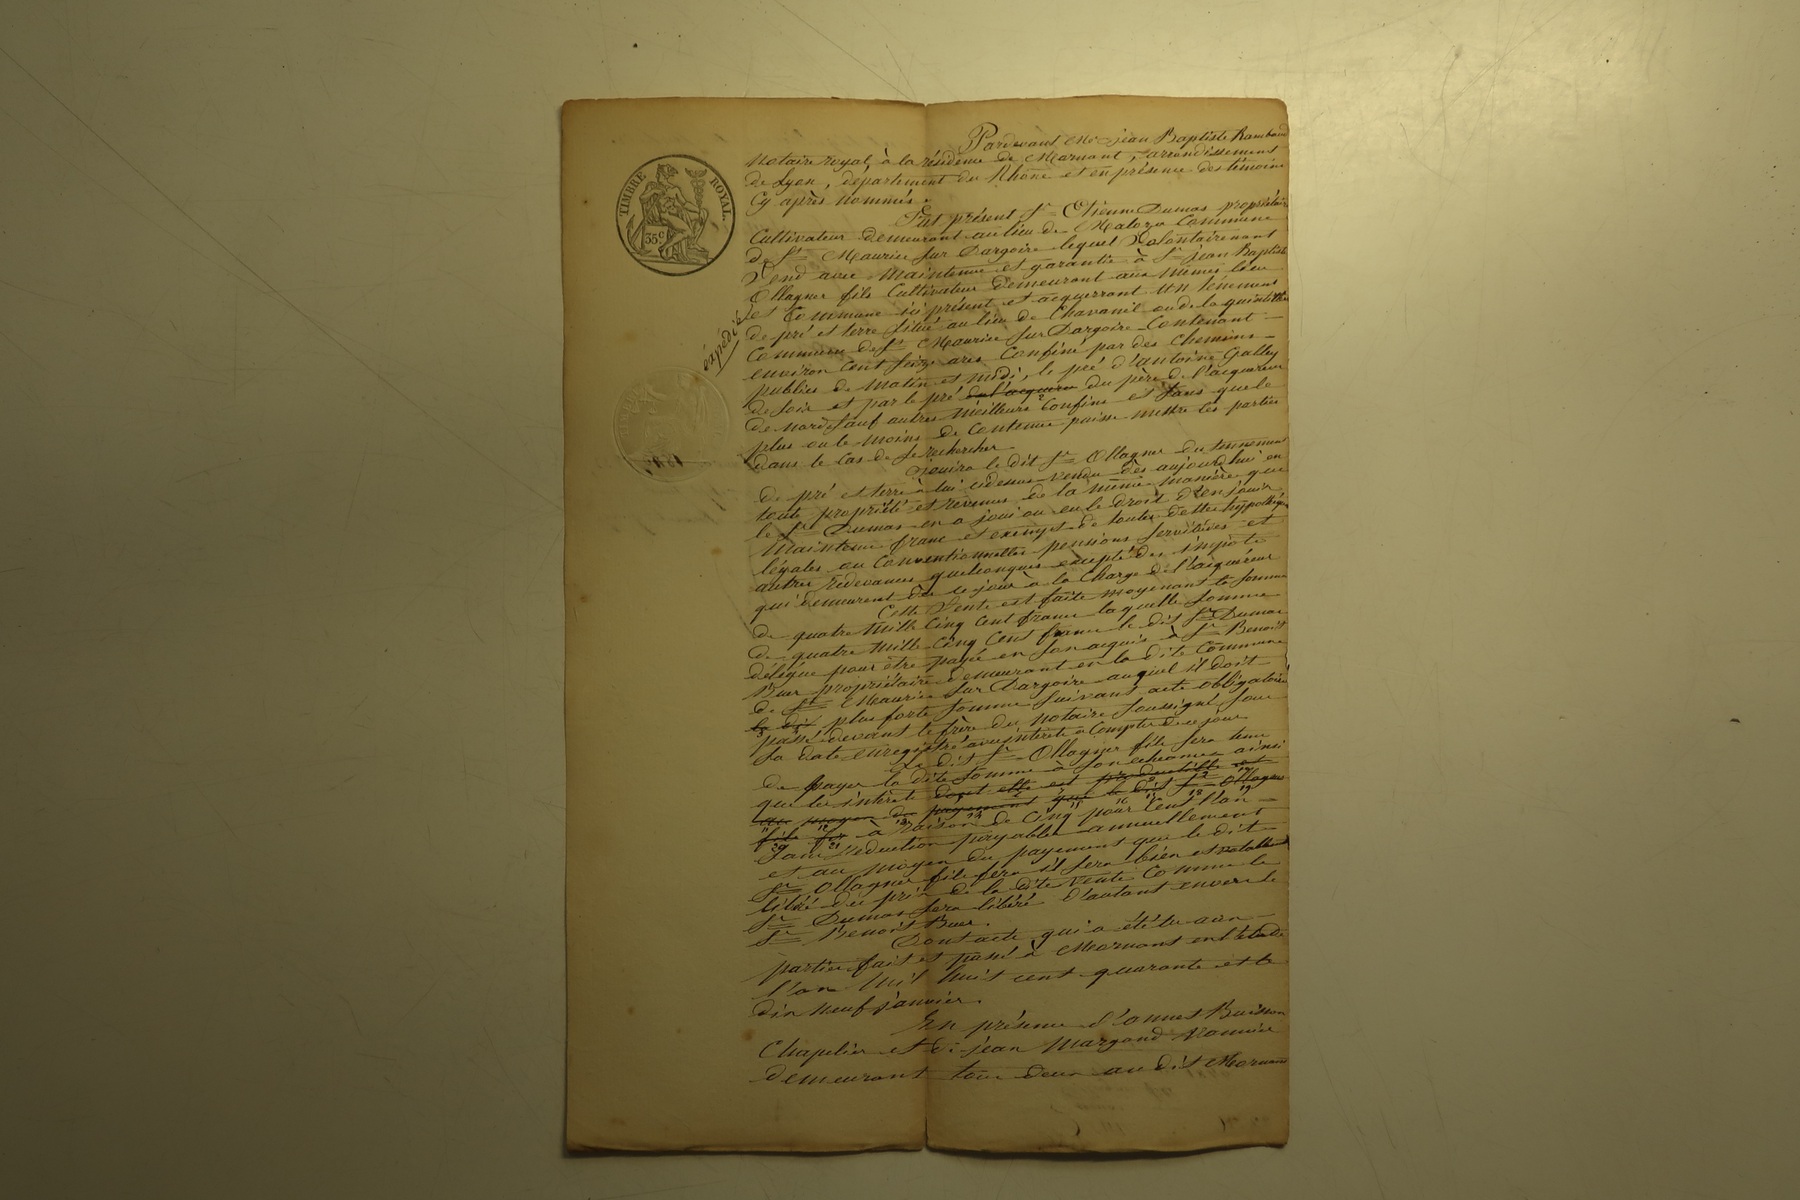 TIMBRE ROYAL.
35 c
expédié
Pardevant Me Jean Baptiste Rambaud
Notaire royal, à la résidence de Mornant, arrondissement
de Lyon, département du Rhône et en présence des témoins
Cy après nommés.
Fut présent Sr Etienne Dumas propriétaire
Cultivateur demeurant au lieu de Commune
de St Maurice sur Dargoire lequel Volontairement
Vend avec Maintenue et garantie à Sr Jean Baptiste
Ollagner fils Cultivateur demeurant aux mêmes lieu
et Commune ici présent et acquerrant un tennement
de pré et terre situé au lieu de Chavanil ou de la
Commune de St Maurice sur Dargoire Contenant
environ Cent Seize ares Confiné par des chemins
publics de Matin et midi, le pré d'antoine
de soir et par le pré de l'acquereur du père de l'acquereur
de nord, sauf autres Meilleurs Confins et sans que le
plus ou le moins de Contenue puisse mettre les parties
dans le Cas de se rechercher.
Jouira le dit Sr Ollagner du tennement
de pré et terre à lui cidessus vendu dès aujourd'hui en
toute propriété et revenus de la même manière que
le Sr Dumas en a joui ou eu le droit d'en jouir
Maintenu franc et exempt de toutes dettes hypothèques
légales ou Conventionnelles pensions Servitudes et
autres redevances quelconques excepté des impots
qui demeurent dès ce jour à la Charge de l'acquereur
Cette Vente est faite moyenant la somme
de quatre Mille Cinq Cent francs laquelle somme
de quatre Mille Cinq Cent francs le dit Sr Dumas
délégue pour être payée en son acquis à Sr Benoit
propriétaire demeurant en la dite Commune
de St Maurice sur Dargoire auquel il doit
le dit plus forte somme suivant acte obligatoire
passé devant le frère du Notaire soussigné sous
sa date enregistré avec interets à Compter de ce jour
Le dit Sr Ollagner fils sera tenu
de payer la dite somme à son echéance ainsi
que les interets dont elle est productible et
au moyen du payement que le dit Sr Ollagner
fils fer à raison de Cinq pour Cent l'an
sans réduction payables annuellement
et au moyen du payement que le dit
Sr Ollagner fils fera il sera bien et valable
libéré du prix de la dite Vente Comme le
Sr Dumas sera libéré d'autant envers le
Sr Benoit
Dont acte qui a été lu aux
parties fait et passé à Mornant en l'etude
l'an Mil huit cent quarante et le
dix neuf janvier.
En présence d'annet Buisson
Chapelier et de Jean Margand
demeurant tous deux au dit Mornant